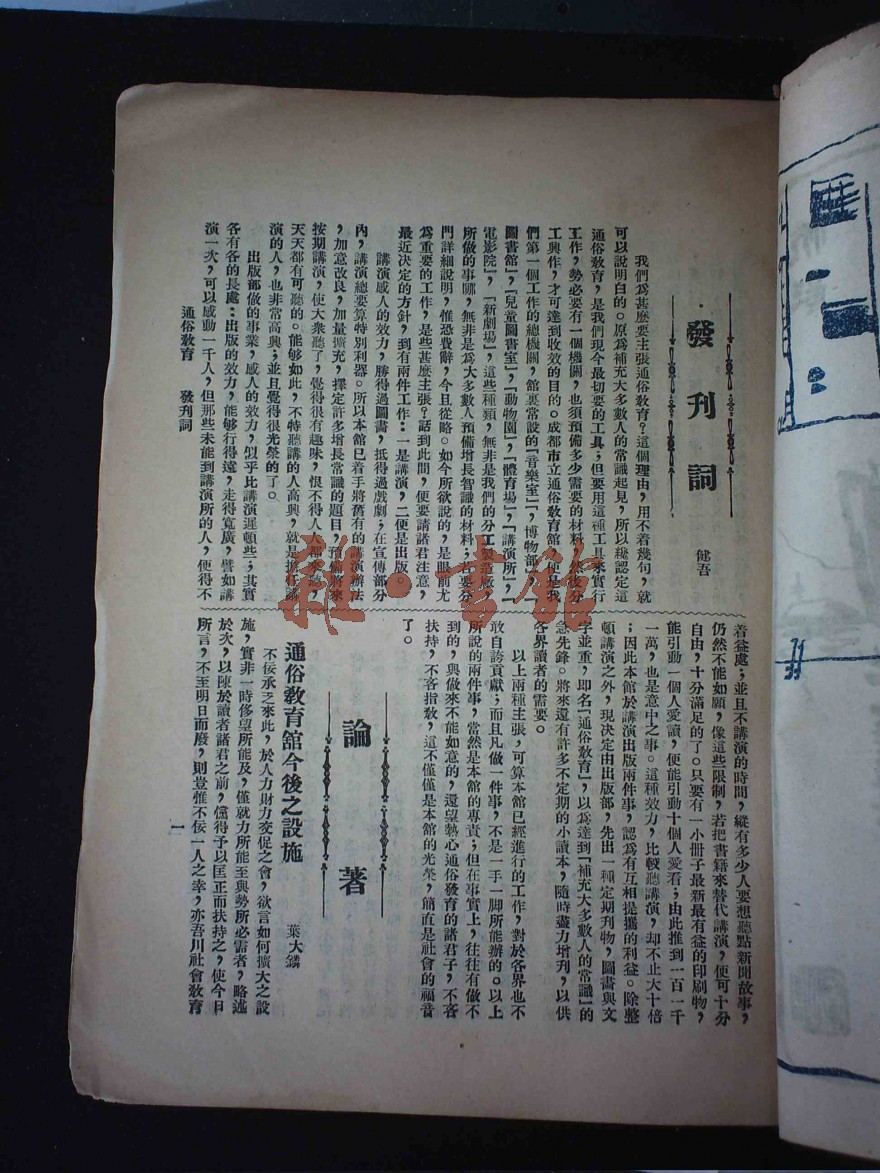 發刊詞
健吾
我們為甚麽要主張通俗教育?這個理由,用不着幾句,就
可以說明白的。原為補充大多數人的常識起見,所以纔認定這
通俗教育,是我們現今最切要的工具;但要用這種工具來實行
工作,勢必要有一個機關,也須預備多少需要的材料,然後分
工興作,才可達到收效的目的。成都市立通俗教育館,便是我
們第一個工作的總機關,館裏常設的「音樂室」,「博物部」,「
圖書館」,「兒童圖書室」,「動物園」,「體育場」,「講演所」,「
電影院」,「新劇場」,這些種類,無非是我們的分工製造廠,
所做的事嘛,無非是為大多數人預備增長智識的材料;若要分
門詳細說明,惟恐費辭,今且從略。如今所欲說的,是眼前尤
為重要的工作,是些甚麽主張?話到此間,便要請諸君注意,
最近決定的方針,到有兩件工作:一是講演,二便是出版。
講演感人的效力,勝得過圖書,抵得過戲劇;在宣傳部分
內,講演總要算特別利器。所以本館已着手將舊有的講演辦法
,加意改良,加量擴充,擇定許多增長常識的題目,預備將來
按期講演,使大衆聽了,覺得很有趣味,恨不得人人都來聽,
天天都有可聽的。能够如此,不特聽講的人高興,就是擔任講
演的人,也非常高興;並且覺得很光榮的了。
出版部做的事業,感人的效力,似乎比講演遲頓些;其實
各有各的長處:出版的效力,能够行得遠,走得寬廣,譬如講
演一次,可以感動一千人,但那些未能到講演所的人,便得不
着益處;並且不講演的時間,縱有多少人要想聽點新聞故事,
仍然不能如願,像這些限制,若把書籍來替代講演,便可十分
自由,十分滿足的了。只要有一小册子最新最有益的印刷物,
能引動一個人愛讀,便能引動十個人愛看;由此推到一百一千
一萬,也是意中之事。這種效力,比較聽講演,却不止大十倍
;因此本館於講演出版兩件事,認為有互相提攜的利益。除整
頓講演之外,現決定由出版部,先出一種定期刊物,圖畫與文
字並重,即名「通俗教育」,以為達到「補充大多數人的常識」的
急先鋒。將來還有許多不定期的小讀本,隨時盡力增刊,以供
各界讀者的需要。
以上兩種主張,可算本館已經進行的工作,對於各界也不
敢自誇貢獻;而且凡做一件事,不是一手一脚所能辦的。以上
所說的兩件事,當然是本館的專責;但在事實上,往往有做不
到的,與做來不能如意的,還望熱心通俗發育的諸君子,不吝
扶持,不客指敎,這不僅僅是本館的光榮,簡直是社會的福音
了。
論著
通俗教育館今後之設施
葉大鏻
不佞承乏來此,於人力財力交促之會,欲言如何擴大之設
施,實非一時侈望所能及,僅就力所能至與勢所必需者,略述
於次,以陳於讀者諸君之前,儻得予以匡正而扶持之,使今日
所言,不至明日而廢,則豈惟不佞一人之幸,亦吾川社會教育
通俗教育 發刊詞
一
雜·書館